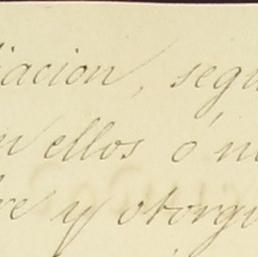 iacion, segu
n ellos ó n
re y otorgu